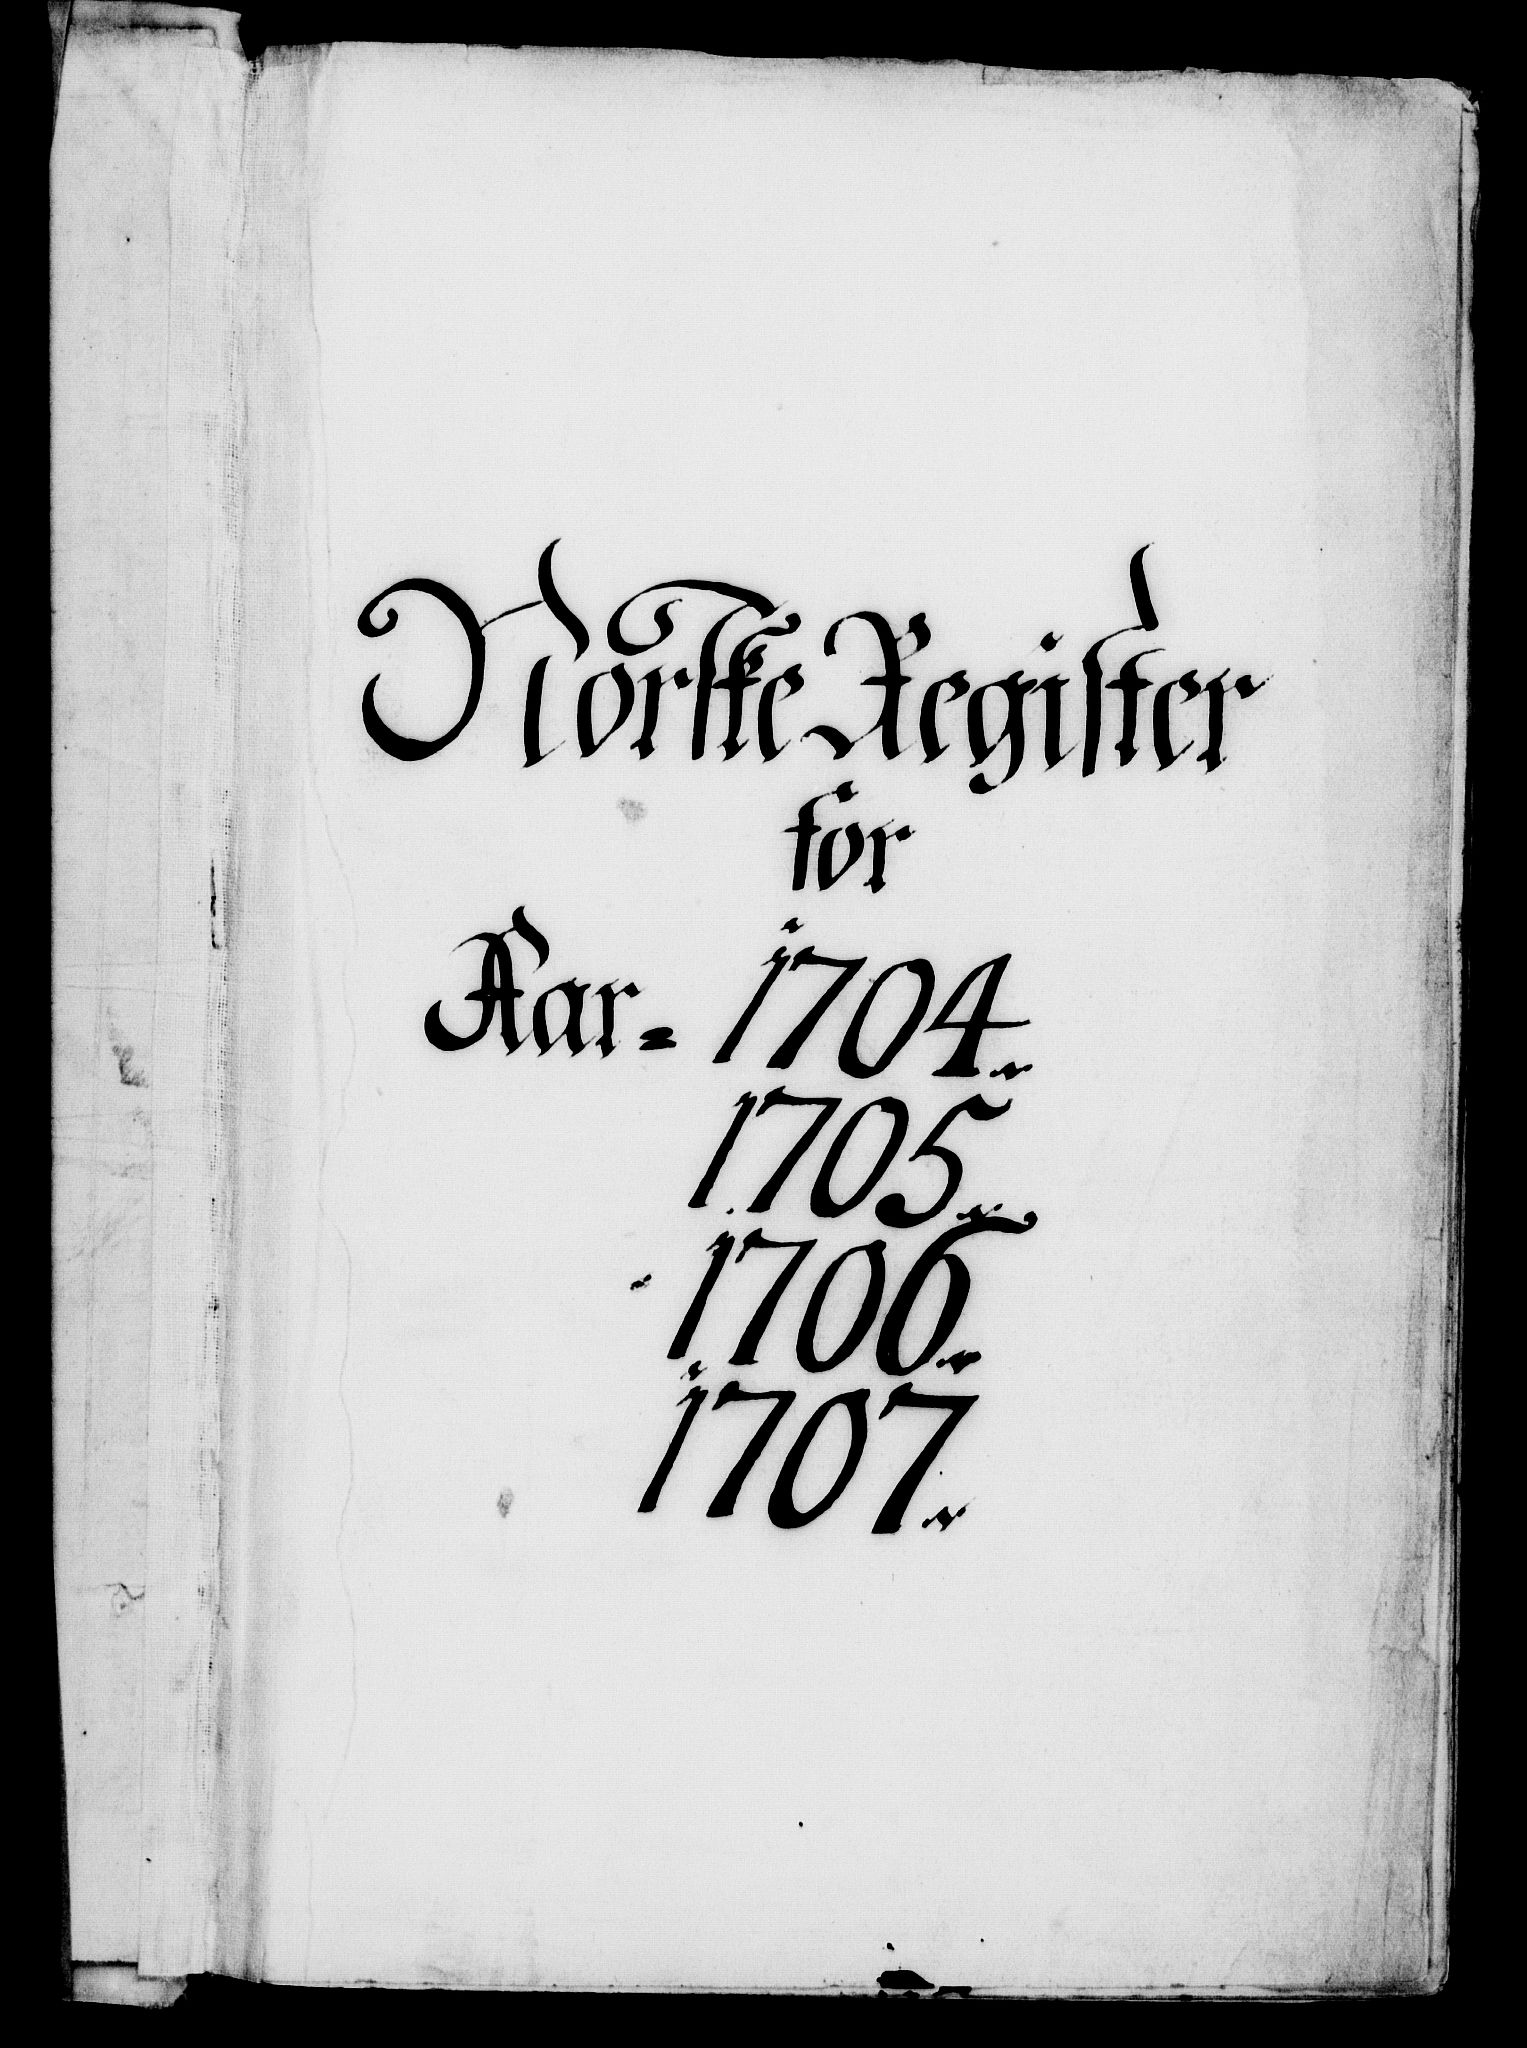 Norske Register
for
Aar = 1704.
1705.
1706.
1707.